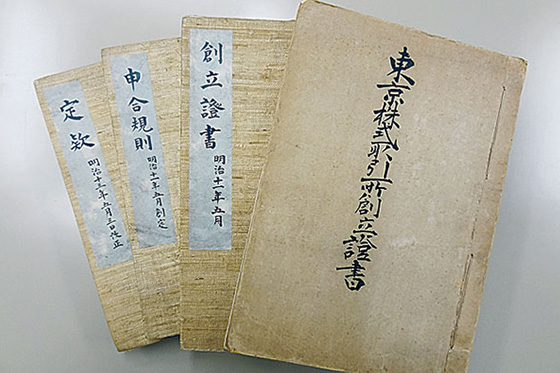 東京株式取引所創立證書
創立證書
明治十一年五月
申合規則
明治十一年五月創定
定款
明治十三年五月三日改正